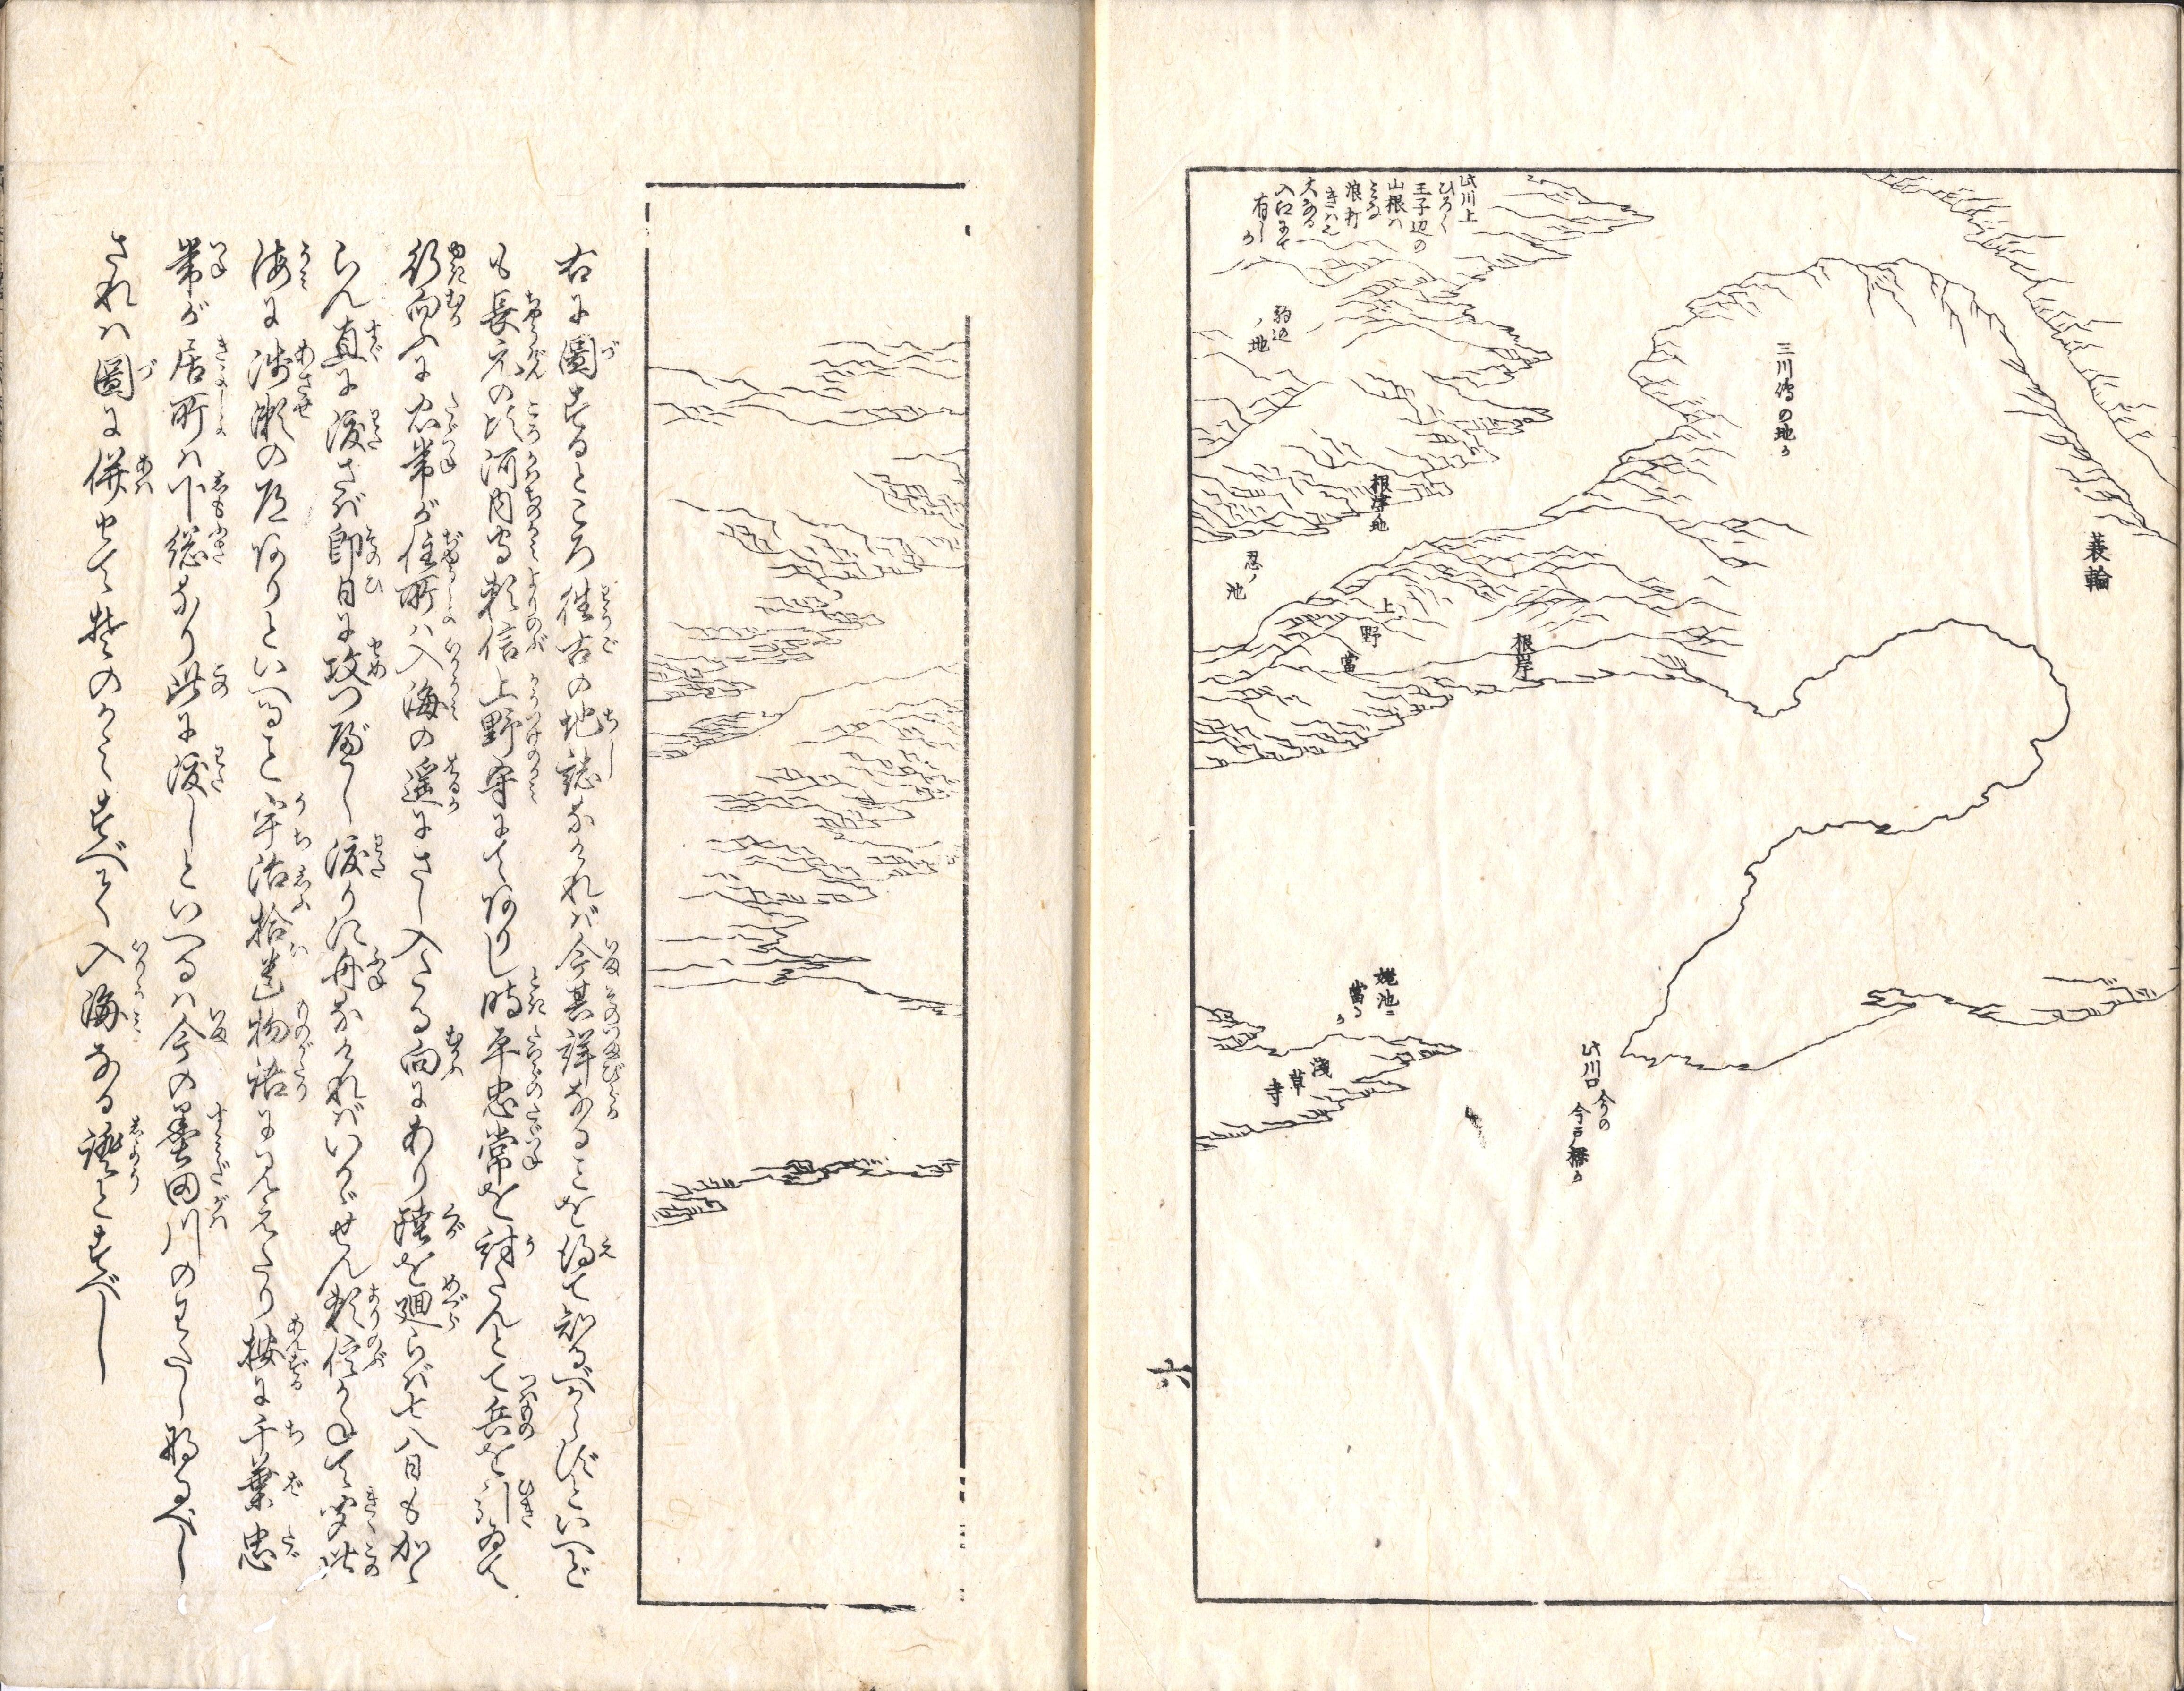 蓑輪
三川傍の地か
此川上
ひろく
王子辺の
山根ハ
ミな
浪打
きハに
大なる
入江にて
有しか
駒込
ノ地
根津ノ地
忍ノ池
上野當
根岸
姥池ニ
當るか
浅草寺
此川口今の
今戸橋か
六
右に圖するところ往古の地誌なけれバ今其詳なることを得て知るべからずといへど
も長元の比河内守頼信上野守にてありし時平忠常を討んとて兵を引ゐて
行向ふに忠常が住所ハ入海の遥にさし入たる向にあり陸を廻らバ七八日もかゝ
らん直に渡さバ即日に攻つべし渡りに舟なけれバいかゞせん頼信かねて聞此
海に浅瀬の道ありといへること宇治拾遺物語に見えたり按に千葉忠
常が居所ハ下総なり此に渡しといへるハ今の墨田川のわたしなるべし
されハ圖に併せて のかミすべて入海なる證とすべし